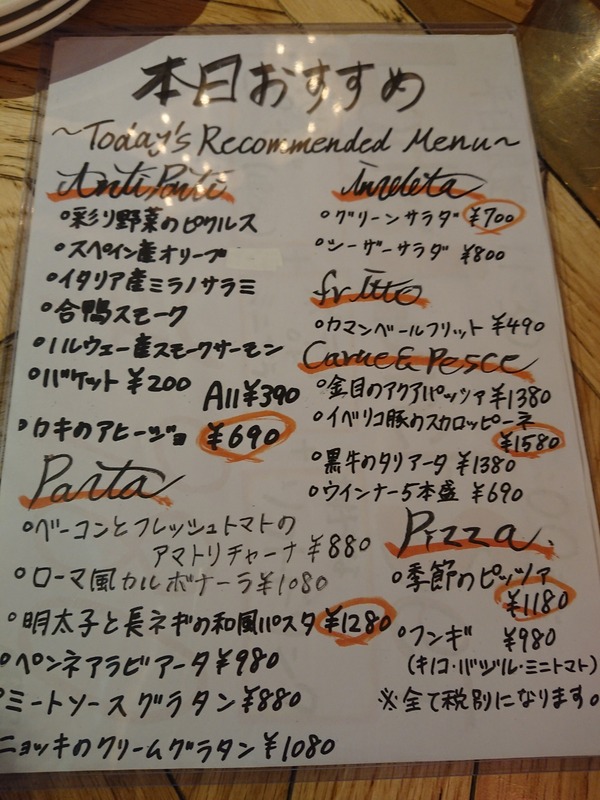 本日おすすめ
~Today's Recommended Menu~
AntiPasti
○彩り野菜のピクルス
○スペイン産オリーブ
○イタリア産ミラノサラミ
○合鴨スモーク
○ノルウェー産スモークサーモン
○バケット ¥200
All ¥390
○カキのアヒージョ ¥690
Pasta
○ベーコンとフレッシュトマトの
アマトリチャーナ ¥880
○ローマ風カルボナーラ ¥1080
○明太子と長ネギの和風パスタ ¥1280
○ペンネアラビアータ ¥980
○ミートソースグラタン ¥880
ニョッキのクリームグラタン ¥1080
insaleta
○グリーンサラダ ¥700
○シーザーサラダ ¥800
fritto
○カマンベールフリット ¥490
Carne & Pesce
○金目のアクアパッツァ ¥1380
○イベリコ豚のスカロッピーネ
¥1580
○黒牛のタリアータ ¥1380
○ウインナー5本盛 ¥690
Pizza.
○季節のピッツァ
¥1180
○フンギ ¥980
(キノコ・バジル・ミニトマト)
※全て税別になります。